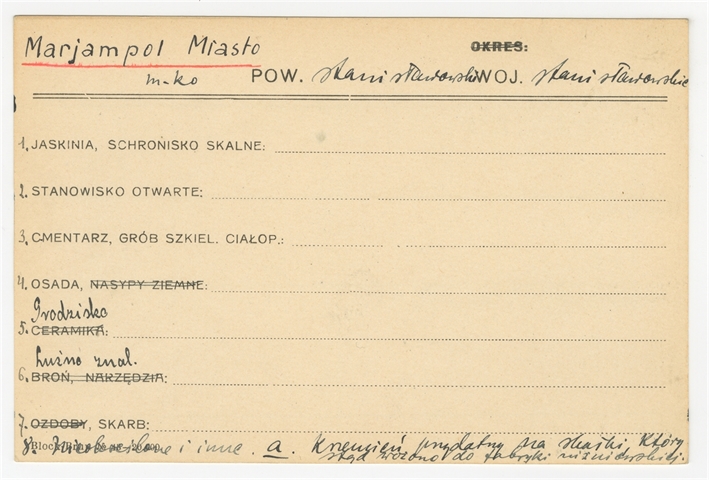 Marjampol Miasto
OKRES:
m-ko POW. stanisławowski WOJ. stanisławowskie
1. JASKINIA, SCHRONISKO SKALNE:
2. STANOWISKO OTWARTE:
3. CMENTARZ, GRÓB SZKIEL. CIAŁOP.:
4. OSADA, NASYPY ZIEMNE:
Grodzisko
5. CERAMIKA:
Luźno znal.
6. BROŃ, NARZĘDZIA:
7. OZDOBY, SKARB:
8. i inne a. krzemień przydatny na skałki, który
stąd wożono do fabryki niżniowskiej.